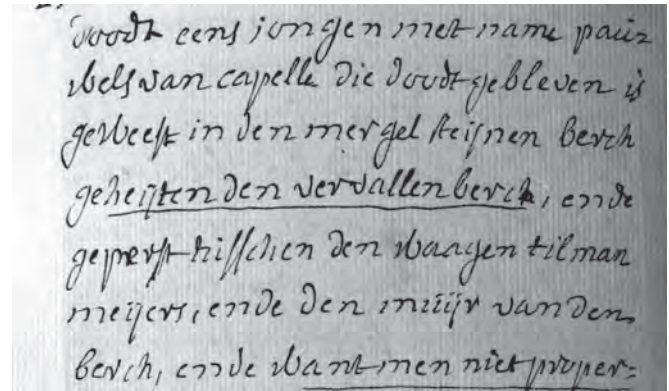 doodt eens jongen met name paũ
wels van capelle die doodt gebleven is
geweest in den mergel steijnen berch
geheijten den vervallen berch, ende
geperst tusschen den waagen tilman
meijers, ende den mũijr van den
berch, ende want men niet proper=